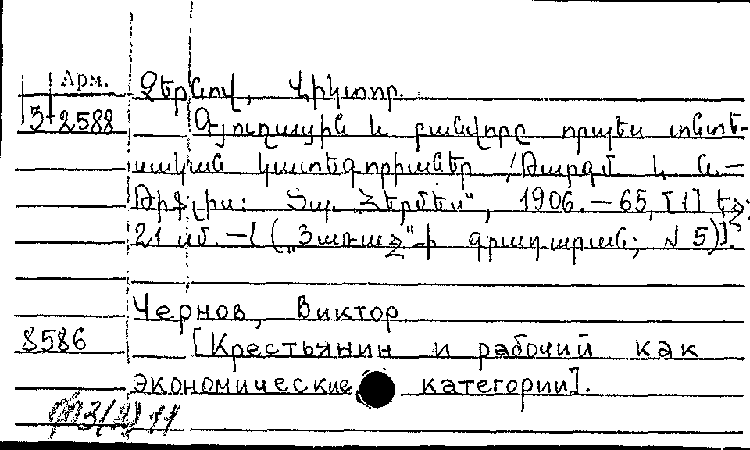 Арм.
Չերնով, Վիկտոր.
3-2588
[Գյուղացին և բանվորը որպես տնտե-
սական կատեգորիաներ /Թարգմ. Կ. Ա.—
Թիֆլիս: Տպ. Հերմես", 1906.— 65, [1] էջ;
21 սմ.— ( „Յառաջ"-ի գրադարան; N 5)].
Чернов, Виктор
8586
[Крестьянин и рабочий как
экономические категории].